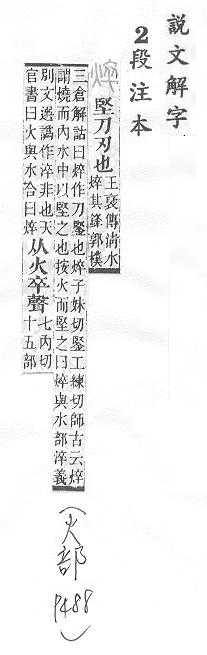 說文解字
2段注本
焠 堅刀刃也王褒傳清水焠其鋒郭樸
三倉解詁曰焠作刀鋻也焠子妹切鋻工練切師古云焠
謂燒而內水中以堅之也按火而堅之曰焠與水部淬義
別文選譌作淬非也天官書曰火與水合曰焠从火卒聲七內切十五部
(火部
P488)